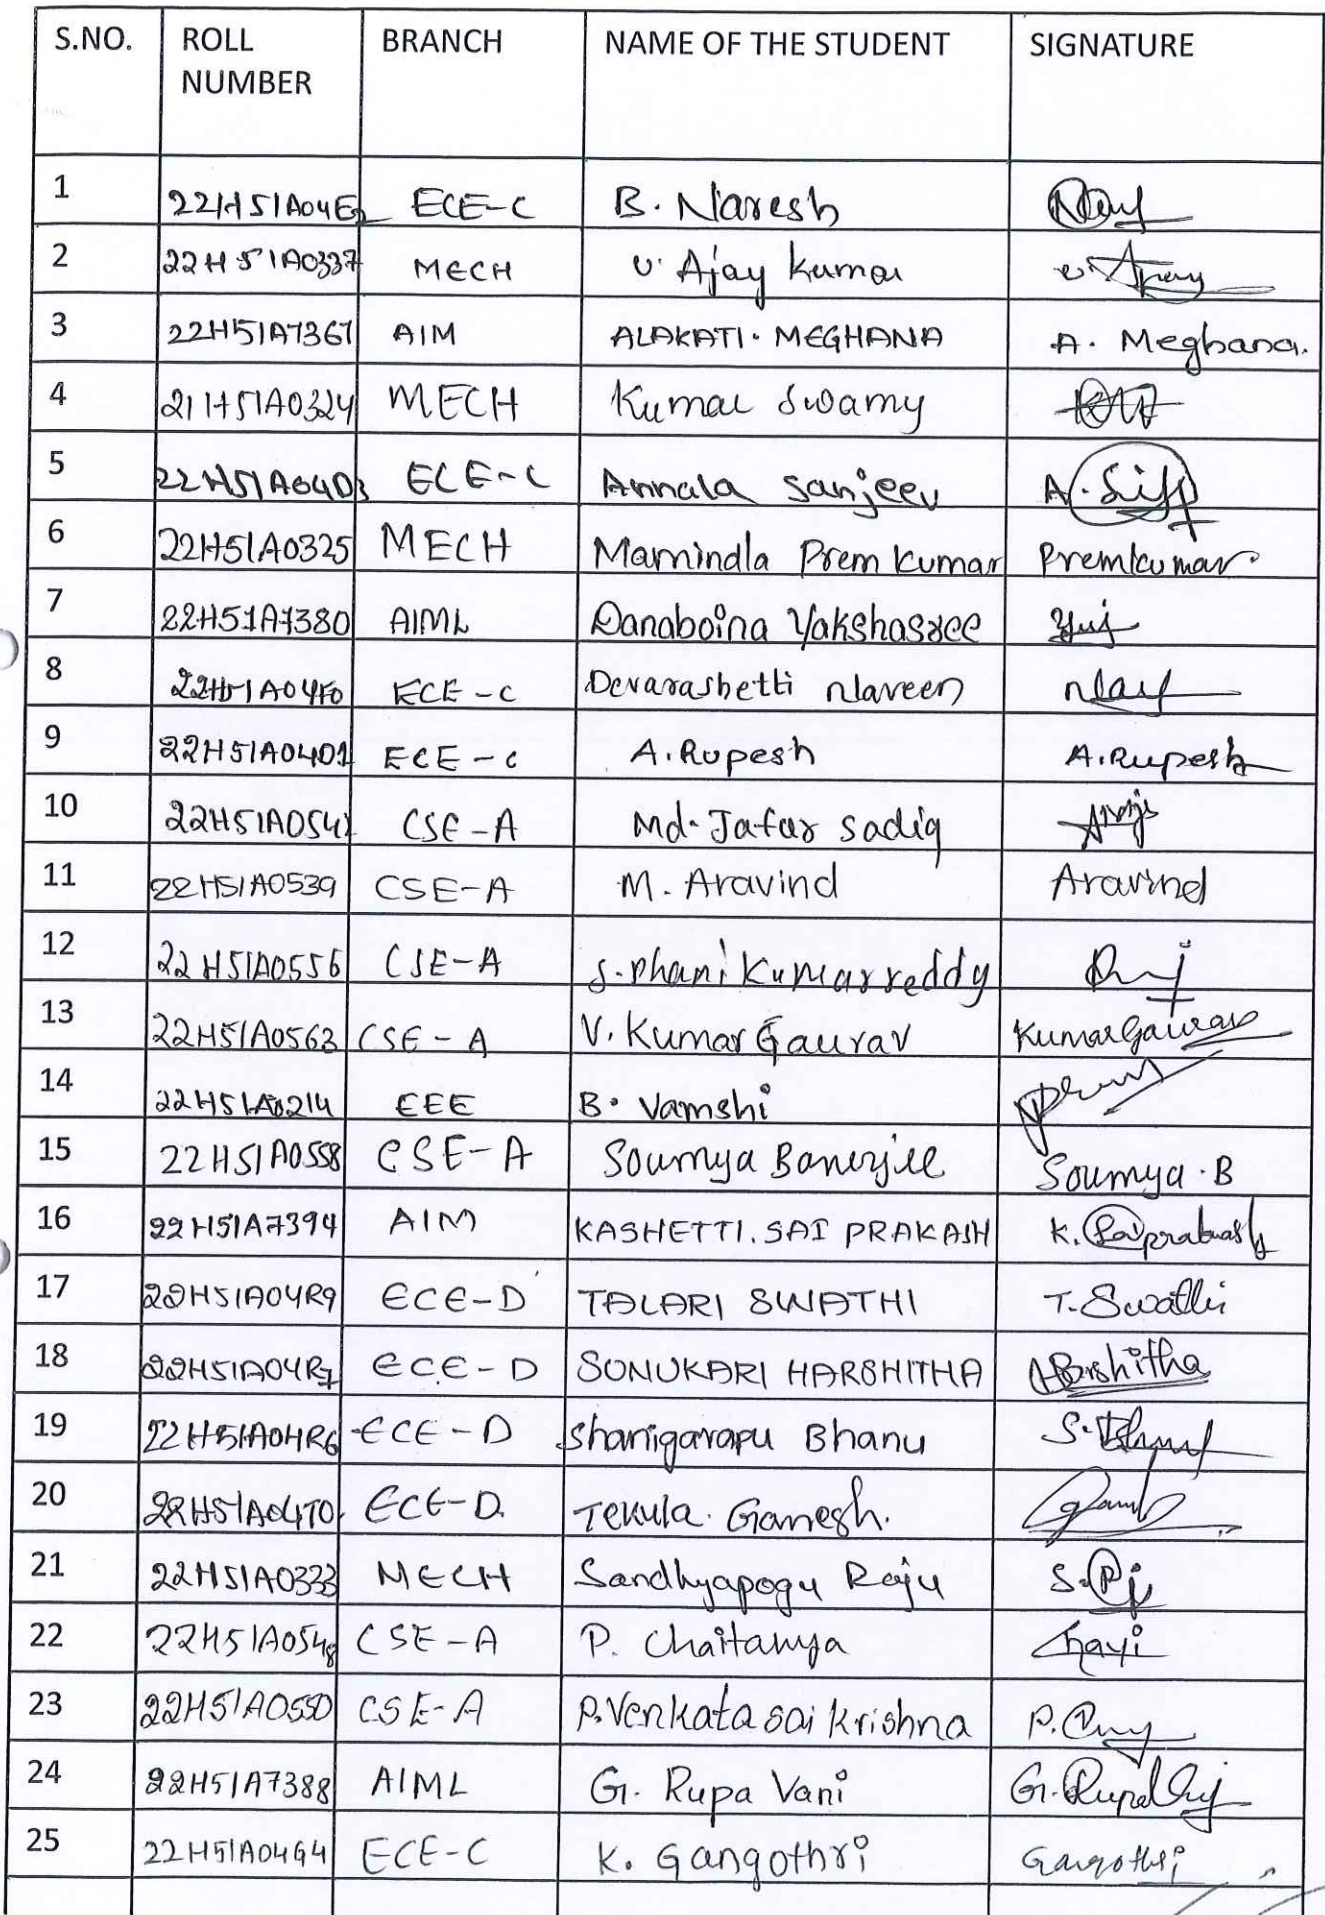 S.NO. ROLL NUMBER BRANCH NAME OF THE STUDENT SIGNATURE
1 22H51A04E2 ECE-C B. Naresh
2 22H51A0337 MECH V. Ajay Kumar
3 22H51A7367 AIM ALAKATI. MEGHANA A. Meghana.
4 21H51A0324 MECH Kumar Swamy
5 22H51A04D3 ECE-C Annala Sanjeev
6 22H51A0325 MECH Mamindla Prem Kumar Premkumar
7 22H51A7380 AIML Danaboina Yakshasree
8 ECE-C Devarashetti Naveen
9 22H51A04D1 ECE-C A. Rupesh A. Rupesh
10 CSE-A Md. Jafar Sadiq
11 22H51A0539 CSE-A M. Aravind Aravind
12 22H51A0556 CSE-A S. Phani Kumar reddy
13 22H51A0563 CSE-A V. Kumar Gaurav Kumar Gaurav
14 22H51A0214 EEE B. Vamshi
15 22H51A0558 CSE-A Soumya Banerjee Soumya.B
16 22H51A7394 AIM KASHETTI. SAI PRAKASH K. Saiprakash
17 22H51A04R9 ECE-D TALARI SWATHI T. Swathi
18 22H51A04R7 ECE-D SUNUKARI HARSHITHA Harshitha
19 22H51A04R6 ECE-D Shanigarapu Bhanu
20 22H51A04T0 ECE-D. Tekula. Ganesh.
21 22H51A0333 MECH Sandhyapogu Raju
22 22H51A0548 CSE-A P. Chaitanya
23 22H51A0550 CSE-A P. Venkata Sai Krishna
24 22H51A7388 AIML G. Rupa Vani
25 22H51A04G4 ECE-C K. Gangothri Gangothri